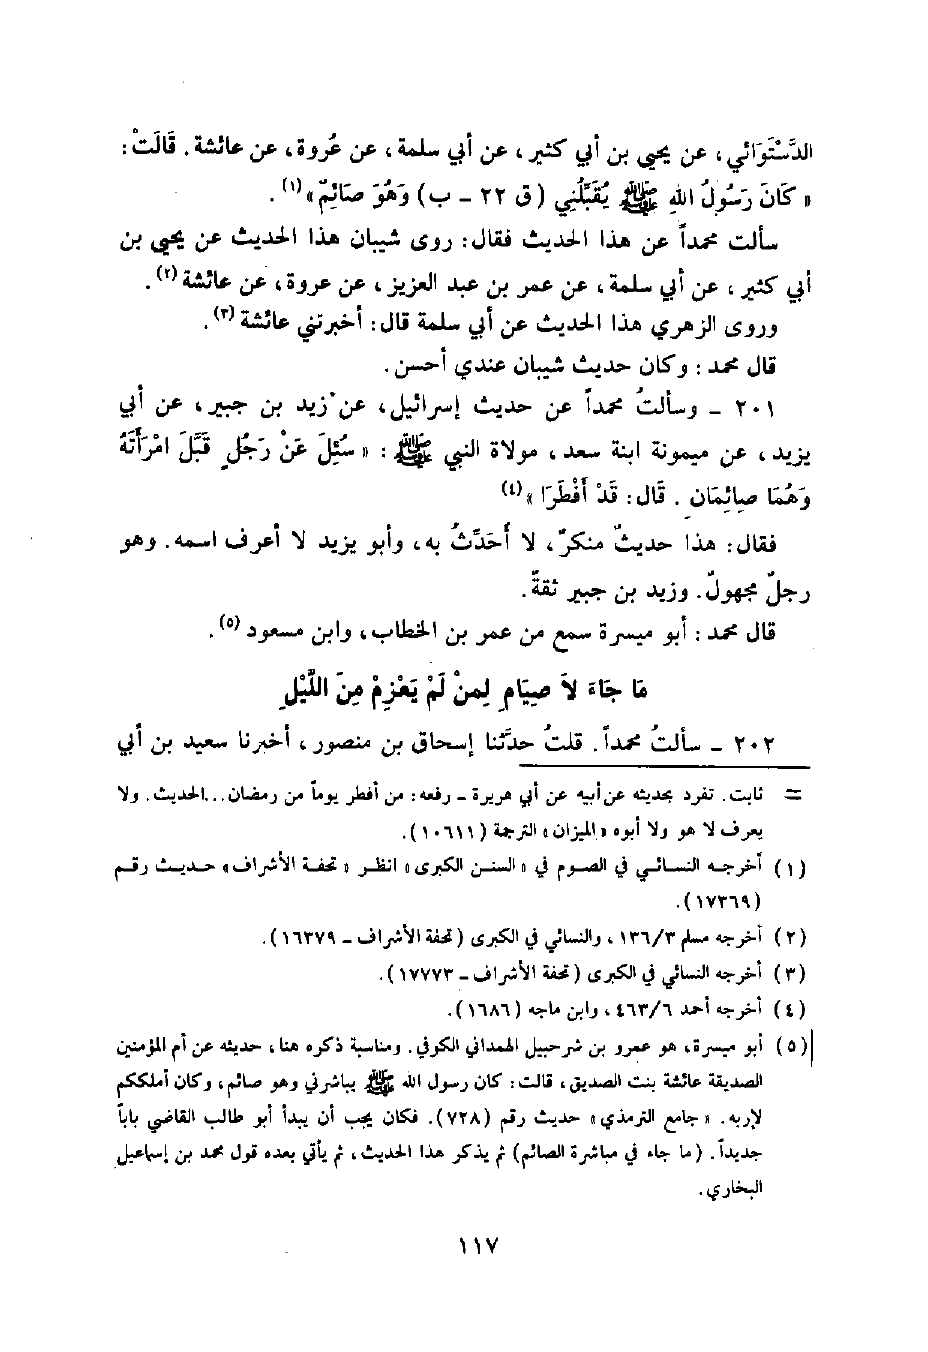 الدَّسْتَوَائي، عن يحيى بن أبي كثير، عن أبي سلمة، عن عُروة، عن عائشة. قَالَتْ:
«كَانَ رَسُولُ اللهِ ﷺ يُقَبِّلُني (ق ٢٢ - ب) وَهُوَ صَائِمٌ»(١).
سألت محمداً عن هذا الحديث فقال: روى شيبان هذا الحديث عن يحيى بن
أبي كثير، عن أبي سلمة، عن عمر بن عبد العزيز، عن عروة، عن عائشة(٢).
وروى الزهري هذا الحديث عن أبي سلمة قال: أخبرتني عائشة(٣).
قال محمد: وكان حديث شيبان عندي أحسن.
٢٠١ - وسألتُ محمداً عن حديث إسرائيل، عن زيد بن جبير، عن أبي
يزيد، عن ميمونة ابنة سعد، مولاة النبي ﷺ: «سُئِلَ عَنْ رَجُلٍ قَبَّلَ امْرَأَتَهُ
وَهُمَا صائِمَان. قَال: قَدْ أَفْطَرَا»(٤)
فقال: هذا حديثٌ منكرٌ، لا أُحَدِّثُ به، وأبو يزيد لا أعرف اسمه. وهو
رجلٌ مجهولٌ. وزيد بن جبير ثقةٌ.
قال محمد: أبو ميسرة سمع من عمر بن الخطاب، وابن مسعود(٥).
مَا جَاءَ لاَ صِيَامِ لِمنْ لَمْ يَعْزِمْ مِنَ اللَّيْلِ
٢٠٢ - سألتُ محمداً. قلتُ حدَّثنا إسحاق بن منصور، أخبرنا سعيد بن أبي
= ثابت. تفرد بحديثه عن أبيه عن أبي هريرة - رفعه: من أفطر يوماً من رمضان...الحديث. ولا
يعرف لا هو ولا أبوه «الميزان» الترجمة (١٠٦١١).
(١) أخرجه النسائي في الصوم في «السنن الكبرى» انظر «تحفة الأشراف» حديث رقم
(١٧٣٦٩).
(٢) أخرجه مسلم ١٣٦/٣، والنسائي في الكبرى (تحفة الأشراف - ١٦٣٧٩).
(٣) أخرجه النسائي في الكبرى (تحفة الأشراف - ١٧٧٧٣).
(٤) أخرجه أحمد ٤٦٣/٦، وابن ماجه (١٦٨٦).
(٥) أبو ميسرة، هو عمرو بن شرحبيل الهمداني الكوفي. ومناسبة ذكره هنا، حديثه عن أم المؤمنين
الصديقة عائشة بنت الصديق، قالت: كان رسول الله ﷺ يباشرني وهو صائم، وكان أملككم
لإربه. «جامع الترمذي» حديث رقم (٧٢٨). فكان يجب أن يبدأ أبو طالب القاضي باباً
جديداً. (ما جاء في مباشرة الصائم) ثم يذكر هذا الحديث، ثم يأتي بعده قول محمد بن إسماعيل
البخاري.
١١٧